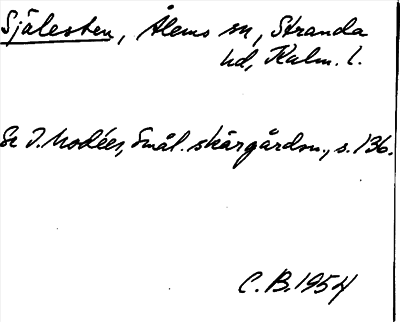 Själesten, Ålems sn, Stranda
hd, Kalm. l.
Se I. Modéer, Smål. skärgårdsn., s. 136.
C.B. 1954